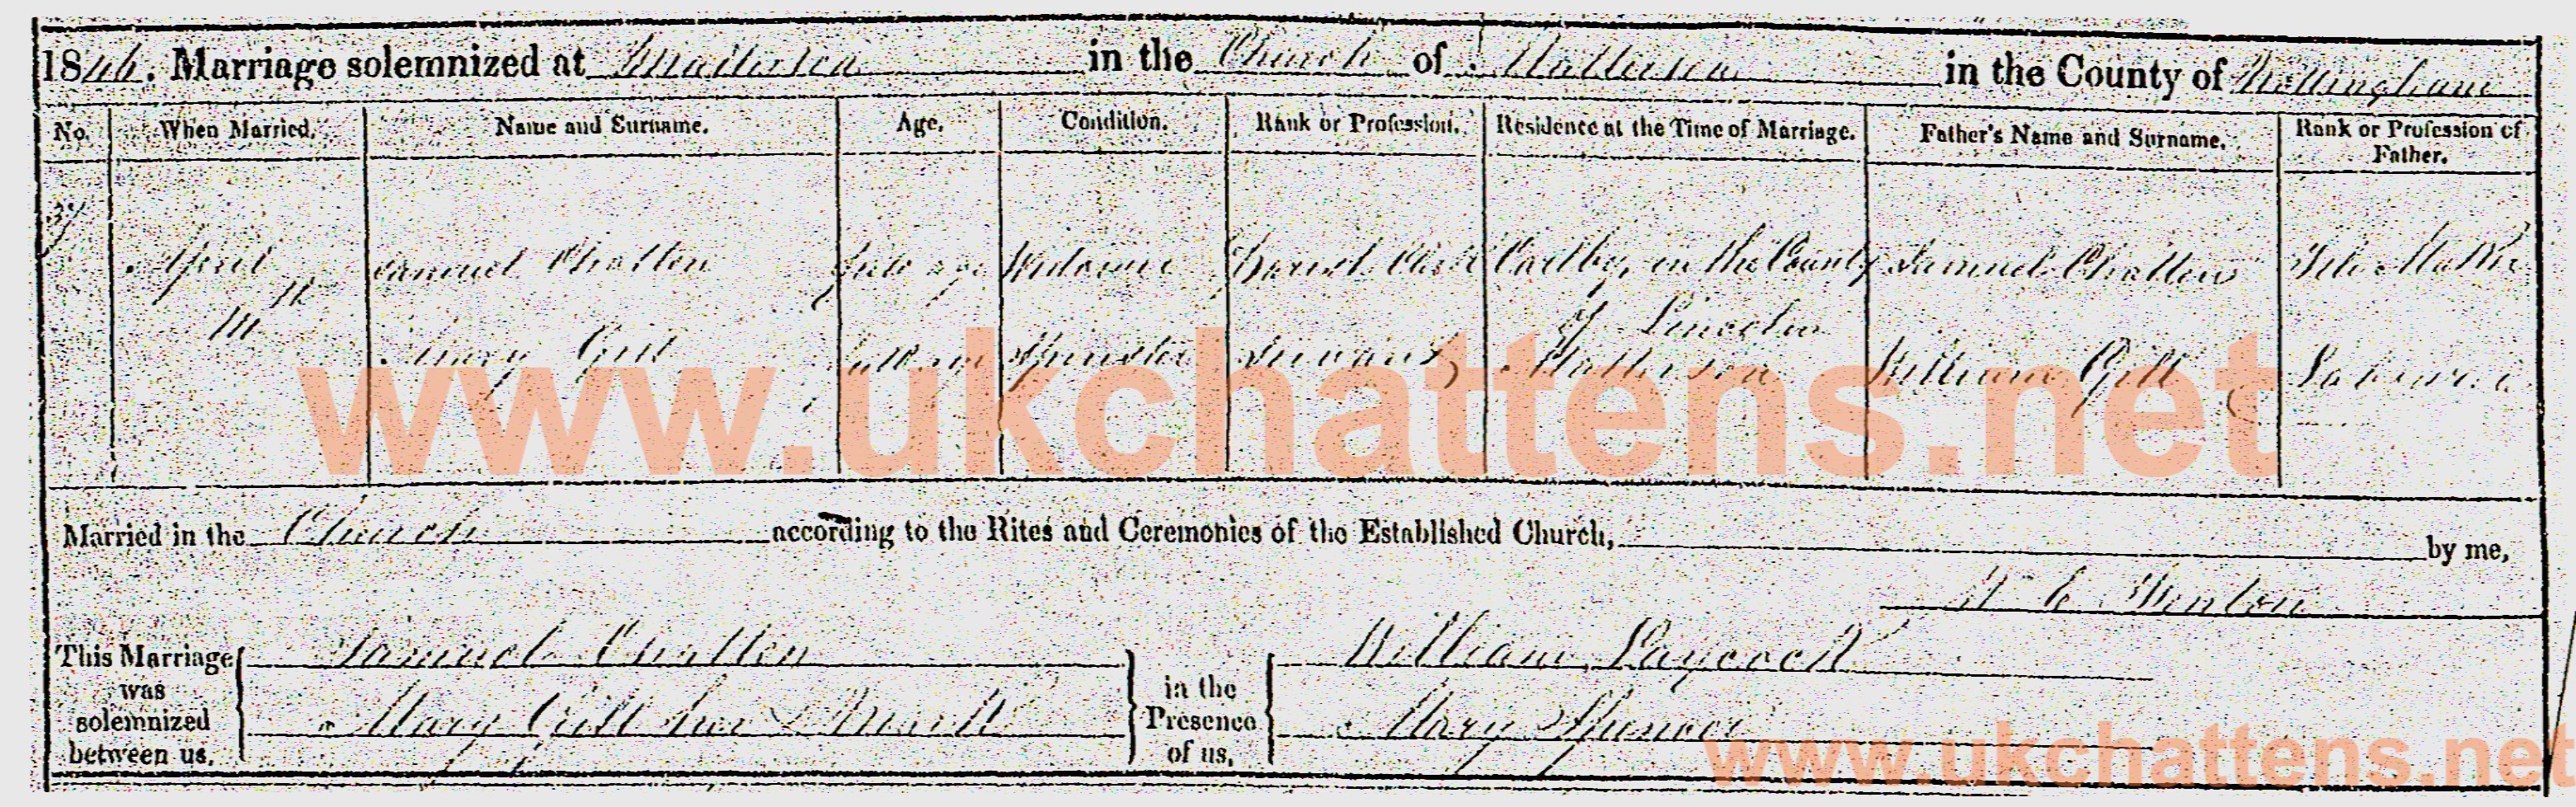 1846. Marriage solemnized at Mattersea in the Church of Mattersea in the County of Nottingham
No. When Married. Name and Surname. Age. Condition. Rank or Profession. Residence at the Time of Marriage. Father's Name and Surname. Rank or Profession of Father.
April Samuel Chatten full age Widower Parish Clerk Cadby, in the County of Lincoln Samuel Chatten
Mary Gill full age Spinster Servant Mattersea William Gill Labourer
www.ukchattens.net
Married in the Church according to the Rites and Ceremonies of the Established Church, by me,
This Marriage was solemnized between us, Samuel Chatten in the Presence of us, William Laycock
Mary Gill her X mark Mary Spencer
www.ukchattens.net